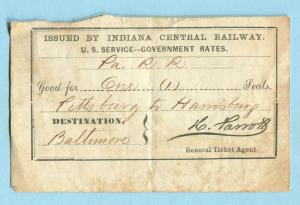 ISSUED BY INDIANA CENTRAL RAILWAY.
U. S. SERVICE--GOVERNMENT RATES.
Pa. R R
Good for One (1) Seats,
Pittsburg to Harrisburg
DESTINATION,
Baltimore
H. Parrott
General Ticket Agent.